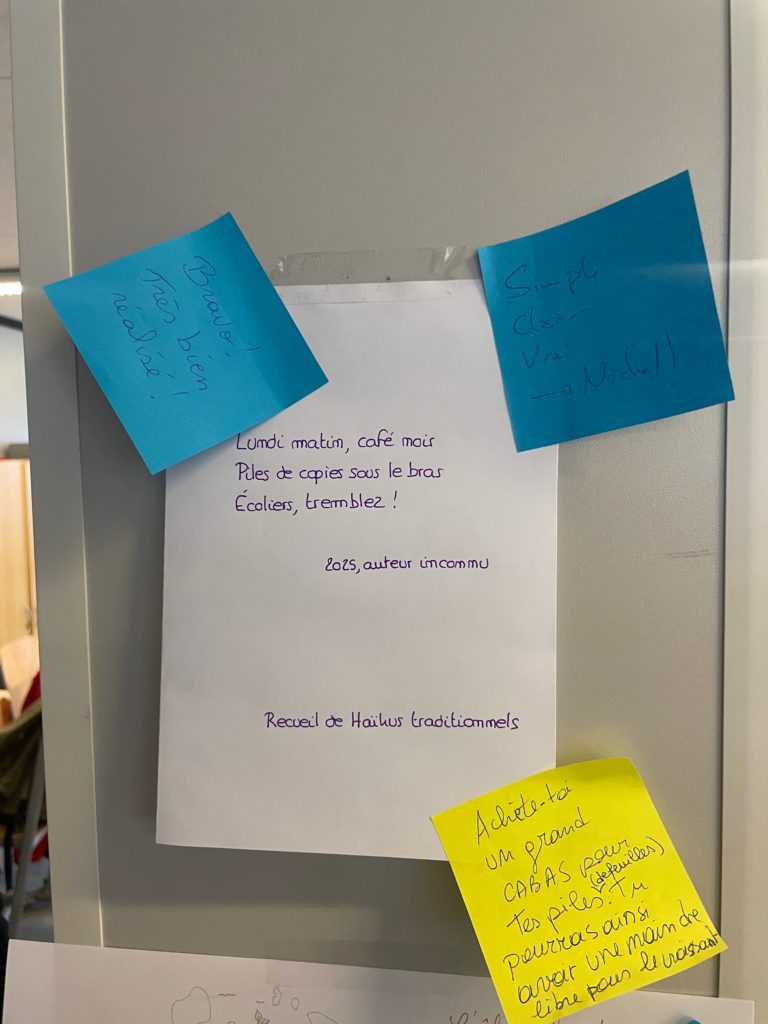 Bravo!
Très bien
réalisé!
Simple
Clair
Vrai
→ Nickel!
Lundi matin, café noir
Piles de copies sous le bras
Écoliers, tremblez !
2025, auteur inconnu
Recueil de Haïkus traditionnels
Achète-toi
un grand
CABAS pour
(de feuilles)
tes piles. Tu
pourras ainsi
avoir une main de
libre pour le croissant